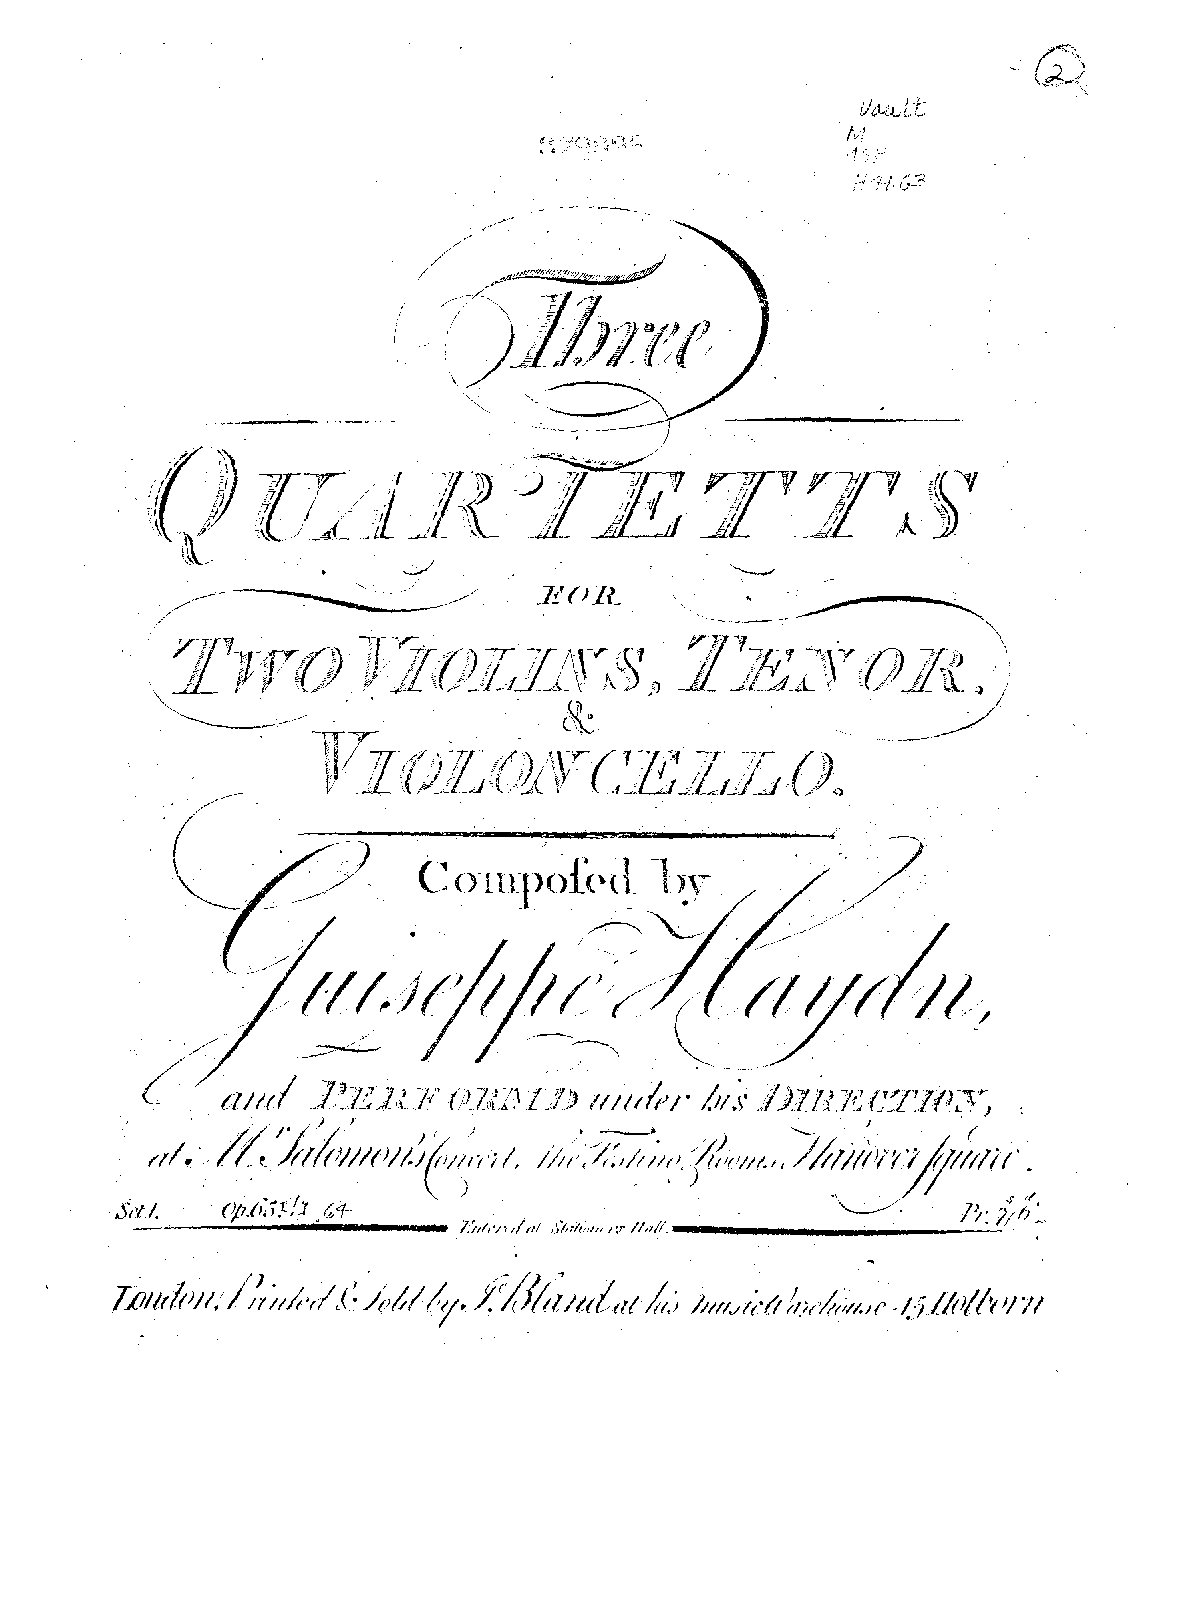 2
Vault
M
H41.63
Three
QUARTETTS
FOR
TWO VIOLINS, TENOR,
&
VIOLONCELLO.
Compoſed by
Guiseppe Haydn,
and PERFORMD under his DIRECTION,
at Mr. Salomon's Concert, the Festino Rooms Hanover Square.
Set 1. Op. 65 64 Pr. 7/6
Entered at Stationers Hall.
London: Printed & sold by J. Bland at his music Warehouse 45 Holborn